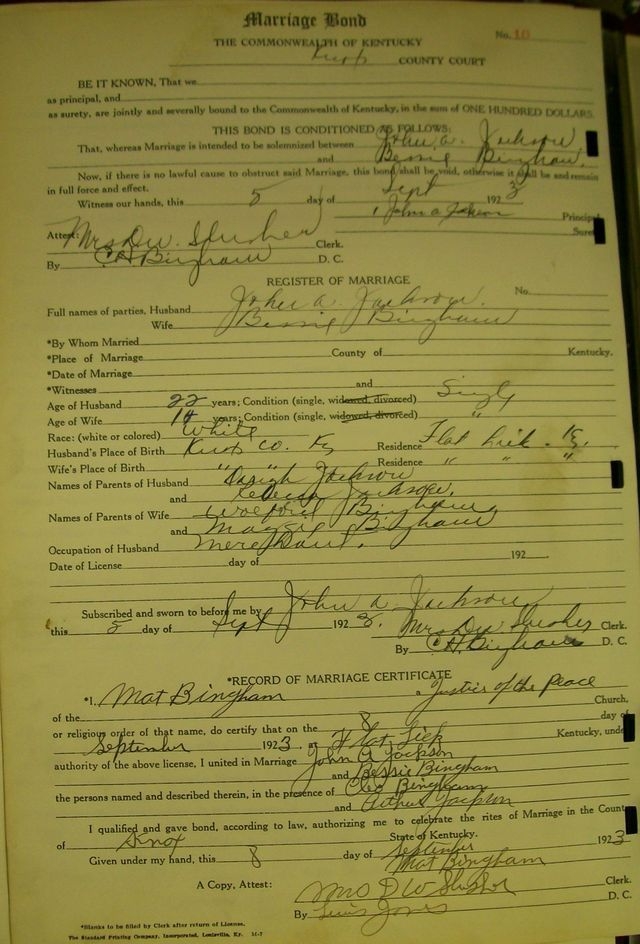 Marriage Bond
No. 10
THE COMMONWEALTH OF KENTUCKY
Knox COUNTY COURT
BE IT KNOWN, That we
as principal, and
as surety, are jointly and severally bound to the Commonwealth of Kentucky, in the sum of ONE HUNDRED DOLLARS.
THIS BOND IS CONDITIONED AS FOLLOWS:
That, whereas Marriage is intended to be solemnized between John A. Jackson
and Bessie Bingham.
Now, if there is no lawful cause to obstruct said Marriage, this bond shall be void, otherwise it shall be and remain
in full force and effect.
Witness our hands, this 5 day of Sept 1923
John A Jackson Principal
Suret
Attest: Mrs D W. Slusher Clerk.
By C H Bingham D. C.
REGISTER OF MARRIAGE
No.
Full names of parties, Husband John A. Jackson.
Wife Bessie Bingham
*By Whom Married
*Place of Marriage County of Kentucky.
*Date of Marriage
*Witnesses and
Age of Husband 22 years; Condition (single, widowed, divorced) Single
Age of Wife 14 years; Condition (single, widowed, divorced) "
Race: (white or colored) White
Husband's Place of Birth Knox Co. Ky Residence Flat Lick. Ky.
Wife's Place of Birth " " Residence " " "
Names of Parents of Husband Jackson
and Jackson.
Names of Parents of Wife Bingham
and Maggie Bingham
Occupation of Husband Merchant.
Date of License day of 192
Subscribed and sworn to before me by John A Jackson
this 5 day of Sept 1923. Mrs D W Slusher Clerk.
By C H Bingham D. C.
*RECORD OF MARRIAGE CERTIFICATE
*I, Mat Bingham a Justice of the Peace
of the Church,
or religious order of that name, do certify that on the 8 day of
September 1923, at Flat Lick Kentucky, unde
authority of the above license, I united in Marriage John A Jackson
and Bessie Bingham
the persons named and described therein, in the presence of Cleo Bingham
and Arthur Jackson
I qualified and gave bond, according to law, authorizing me to celebrate the rites of Marriage in the Count
of Knox State of Kentucky.
Given under my hand, this 8 day of September 1923
Mat Bingham
A Copy, Attest: Mrs D W Slusher Clerk.
By Jones D. C.
*Blanks to be filled by Clerk after return of License.
The Standard Printing Company, Incorporated, Louisville, Ky. 11-7